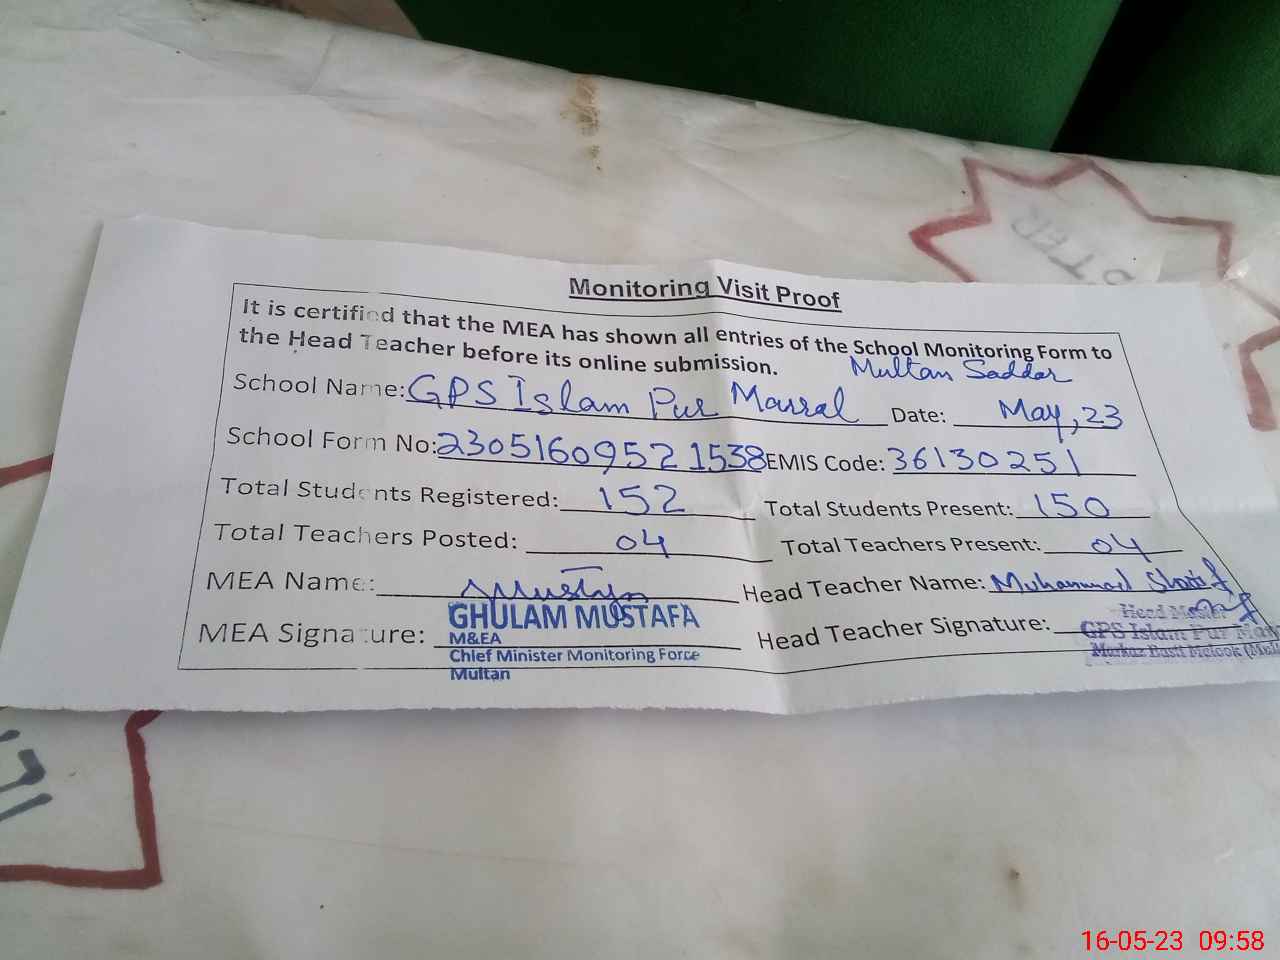 Monitoring Visit Proof
It is certified that the MEA has shown all entries of the School Monitoring Form to
the Head Teacher before its online submission.
Multan Saddar
School Name: GPS Islam Pur Marral Date: May, 23
School Form No: 2305160952 1538 EMIS Code: 36130251
Total Students Registered: 152 Total Students Present: 150
Total Teachers Posted: 04 Total Teachers Present: 04
MEA Name: Head Teacher Name: Muhammad Sharif
GHULAM MUSTAFA
MEA Signature: Head Teacher Signature:
M&EA
Chief Minister Monitoring Force
Multan
Head Master
GPS Islam Pur
Markaz Basti Melook
16-05-23 09:58